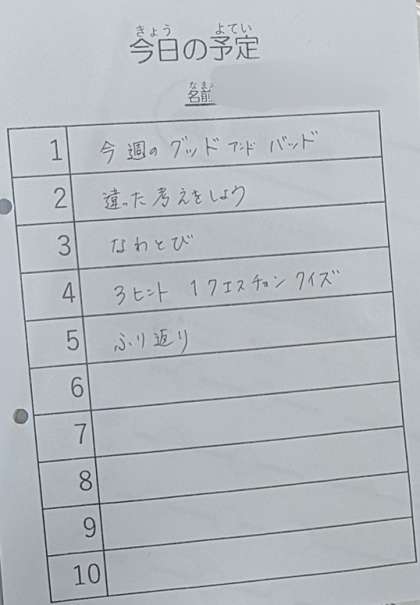 きょう よてい
今日の予定
なまえ
名前
1 今週のグッドアンドバッド
2 違った考えをしよう
3 なわとび
4 3ヒント 1クエスチョンクイズ
5 ふり返り
6
7
8
9
10